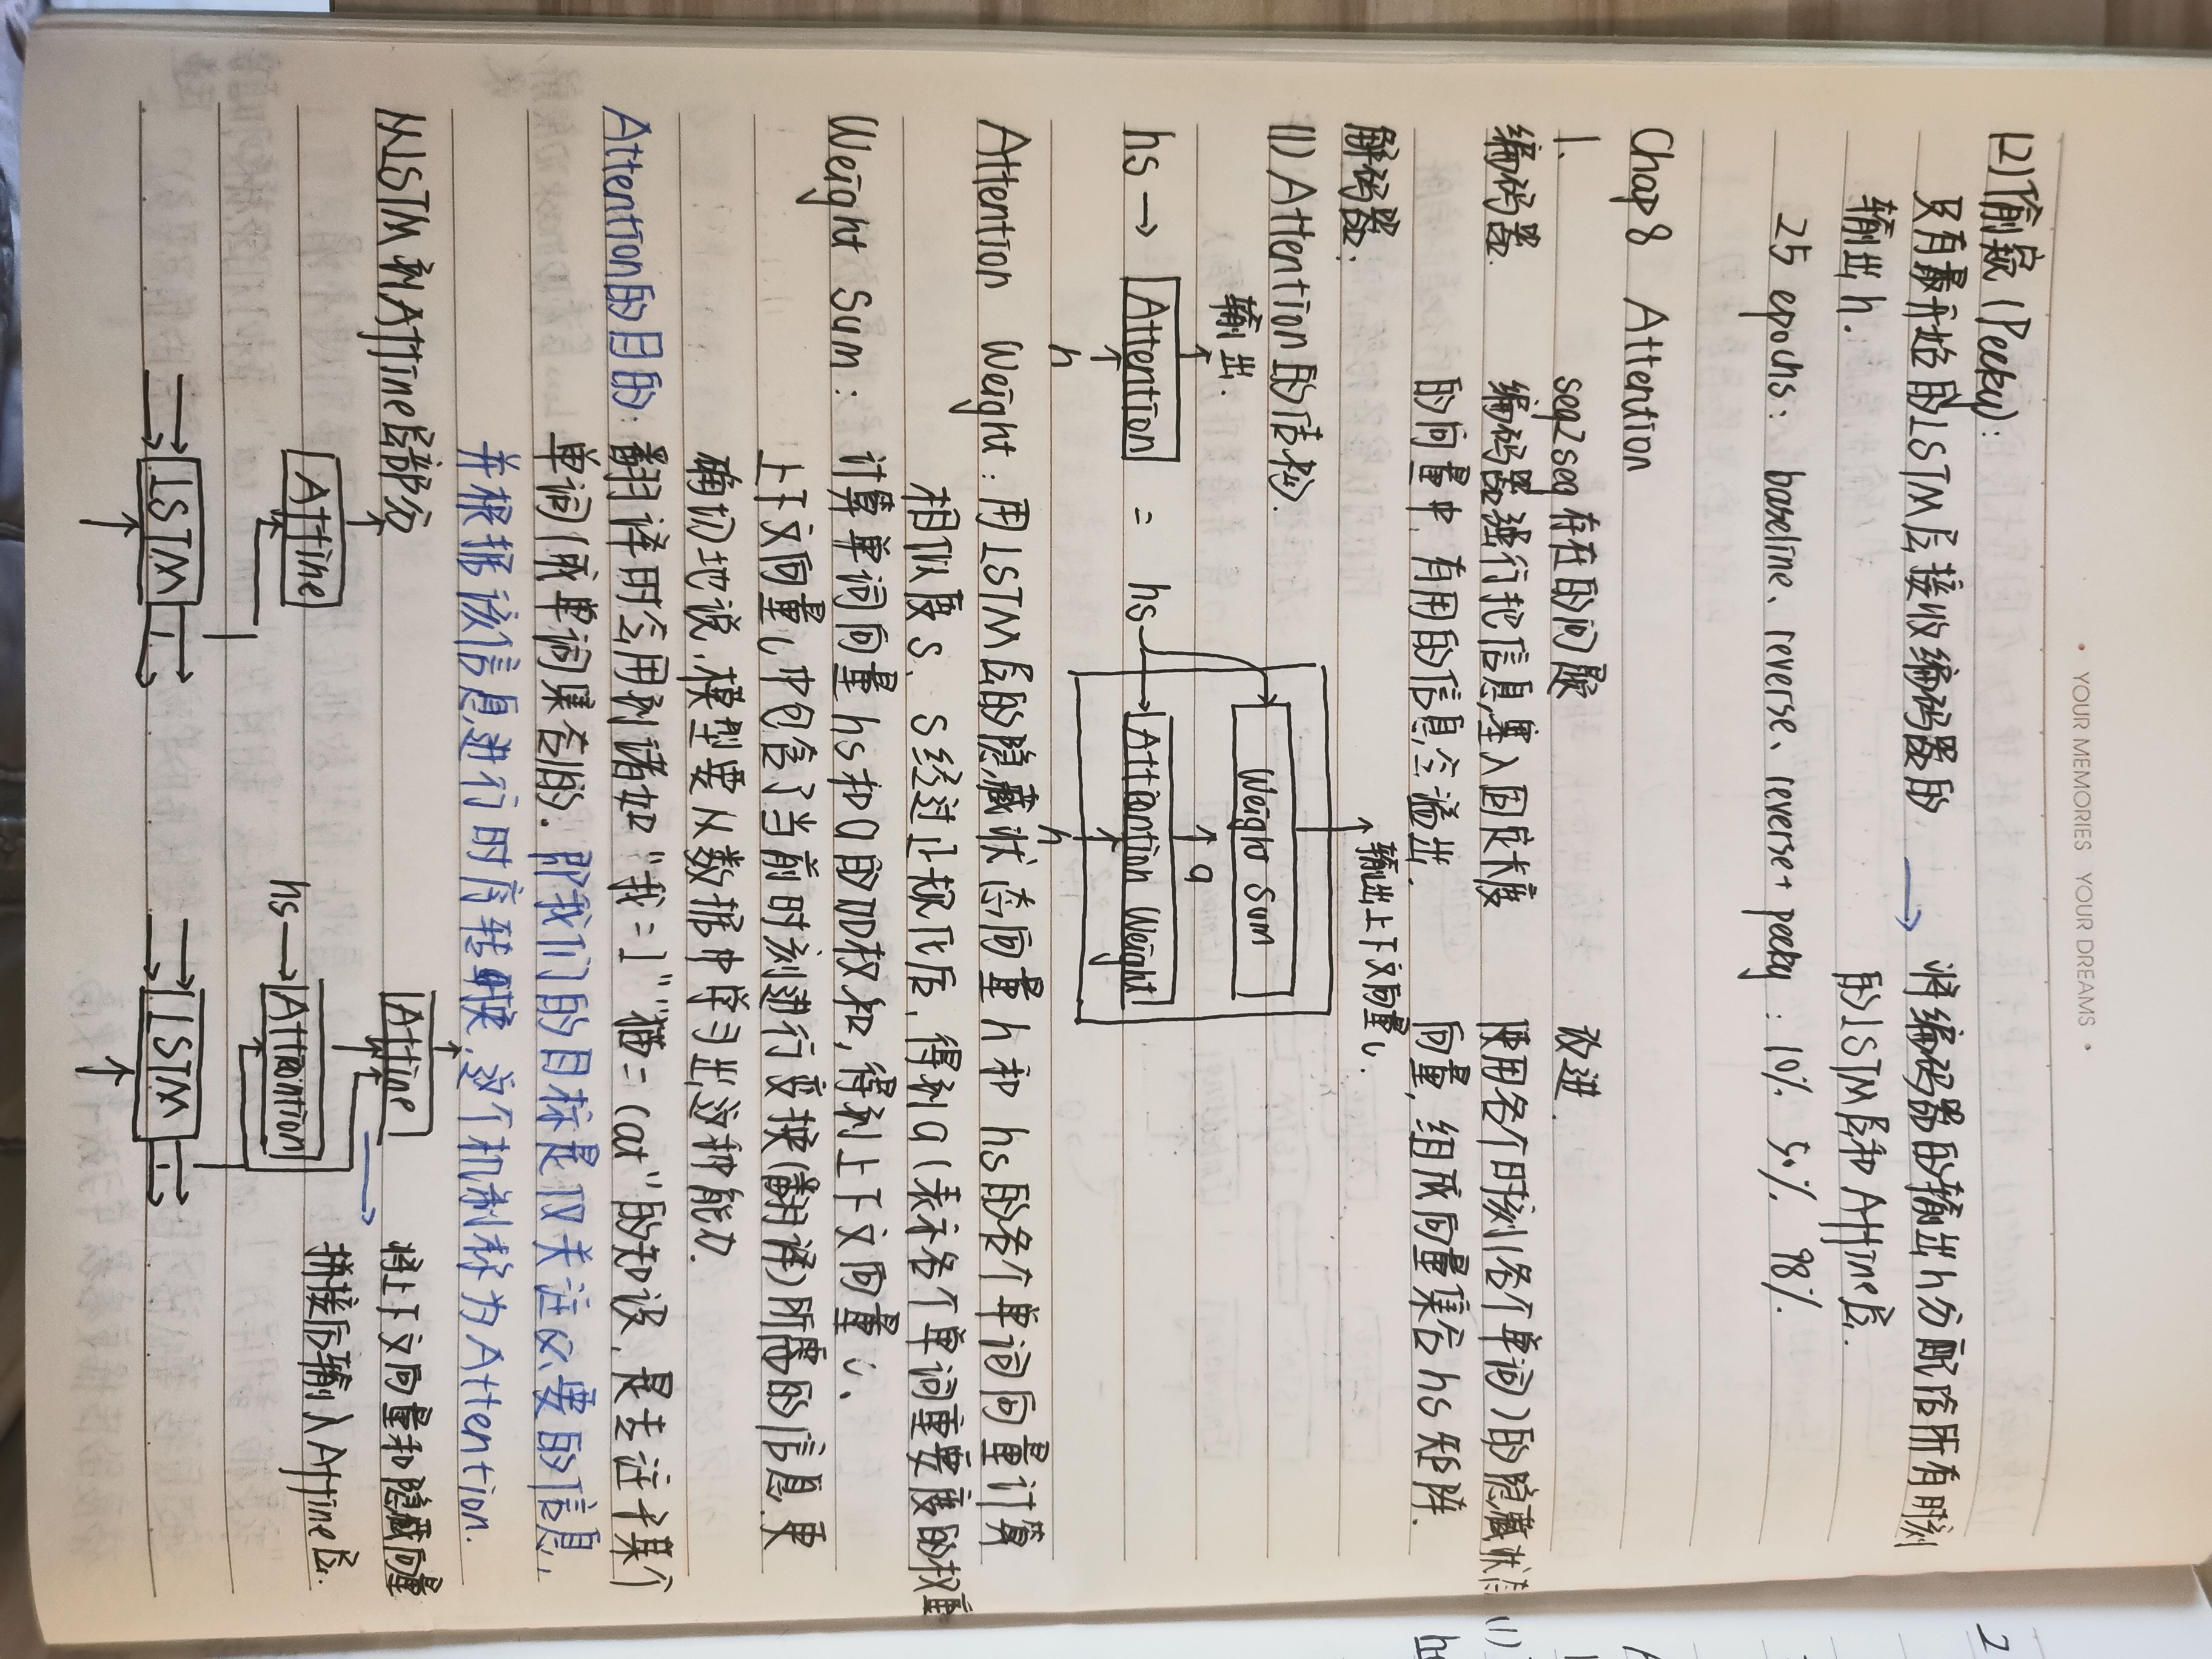 • YOUR MEMORIES YOUR DREAMS •
(2)偷窥(Peeky):
只有最开始的LSTM层接收编码器的 → 将编码器的输出h分配给所有时刻
输出h. 的LSTM层和Affine层.
25 epochs: baseline、reverse、reverse+peeky : 10% 50% 98%.
Chap 8 Attention
1. seq2seq存在的问题 改进.
编码器. 编码器强行把信息塞入固定长度 使用各个时刻(各个单词)的隐藏状态
的向量中,有用的信息会溢出. 向量,组成向量集合hs矩阵.
解码器:
(1)Attention的结构.
输出: 输出上下文向量c.
hs → Attention = hs Weight Sum
a
Attention Weight
h h
Attention Weight:用LSTM层的隐藏状态向量h和hs的各个单词向量计算
相似度s、s经过正规化后,得到a(表示各个单词重要度的权重
Weight Sum:计算单词向量hs和a的加权和,得到上下文向量c、
上下文向量c中包含了当前时刻进行变换(翻译)所需的信息.更
确切地说,模型要从数据中学习出这种能力.
Attention的目的:翻译时会用到诸如"我=I""猫=cat"的知识,是专注于某个
单词(或单词集合)的.即我们的目标是仅关注必要的信息,
并根据该信息进行时序转换,这个机制称为Attention.
从LSTM和Affine层部分
Affine Affine 将上下文向量和隐藏向量
hs → Attention 拼接后输入Affine层.
LSTM LSTM